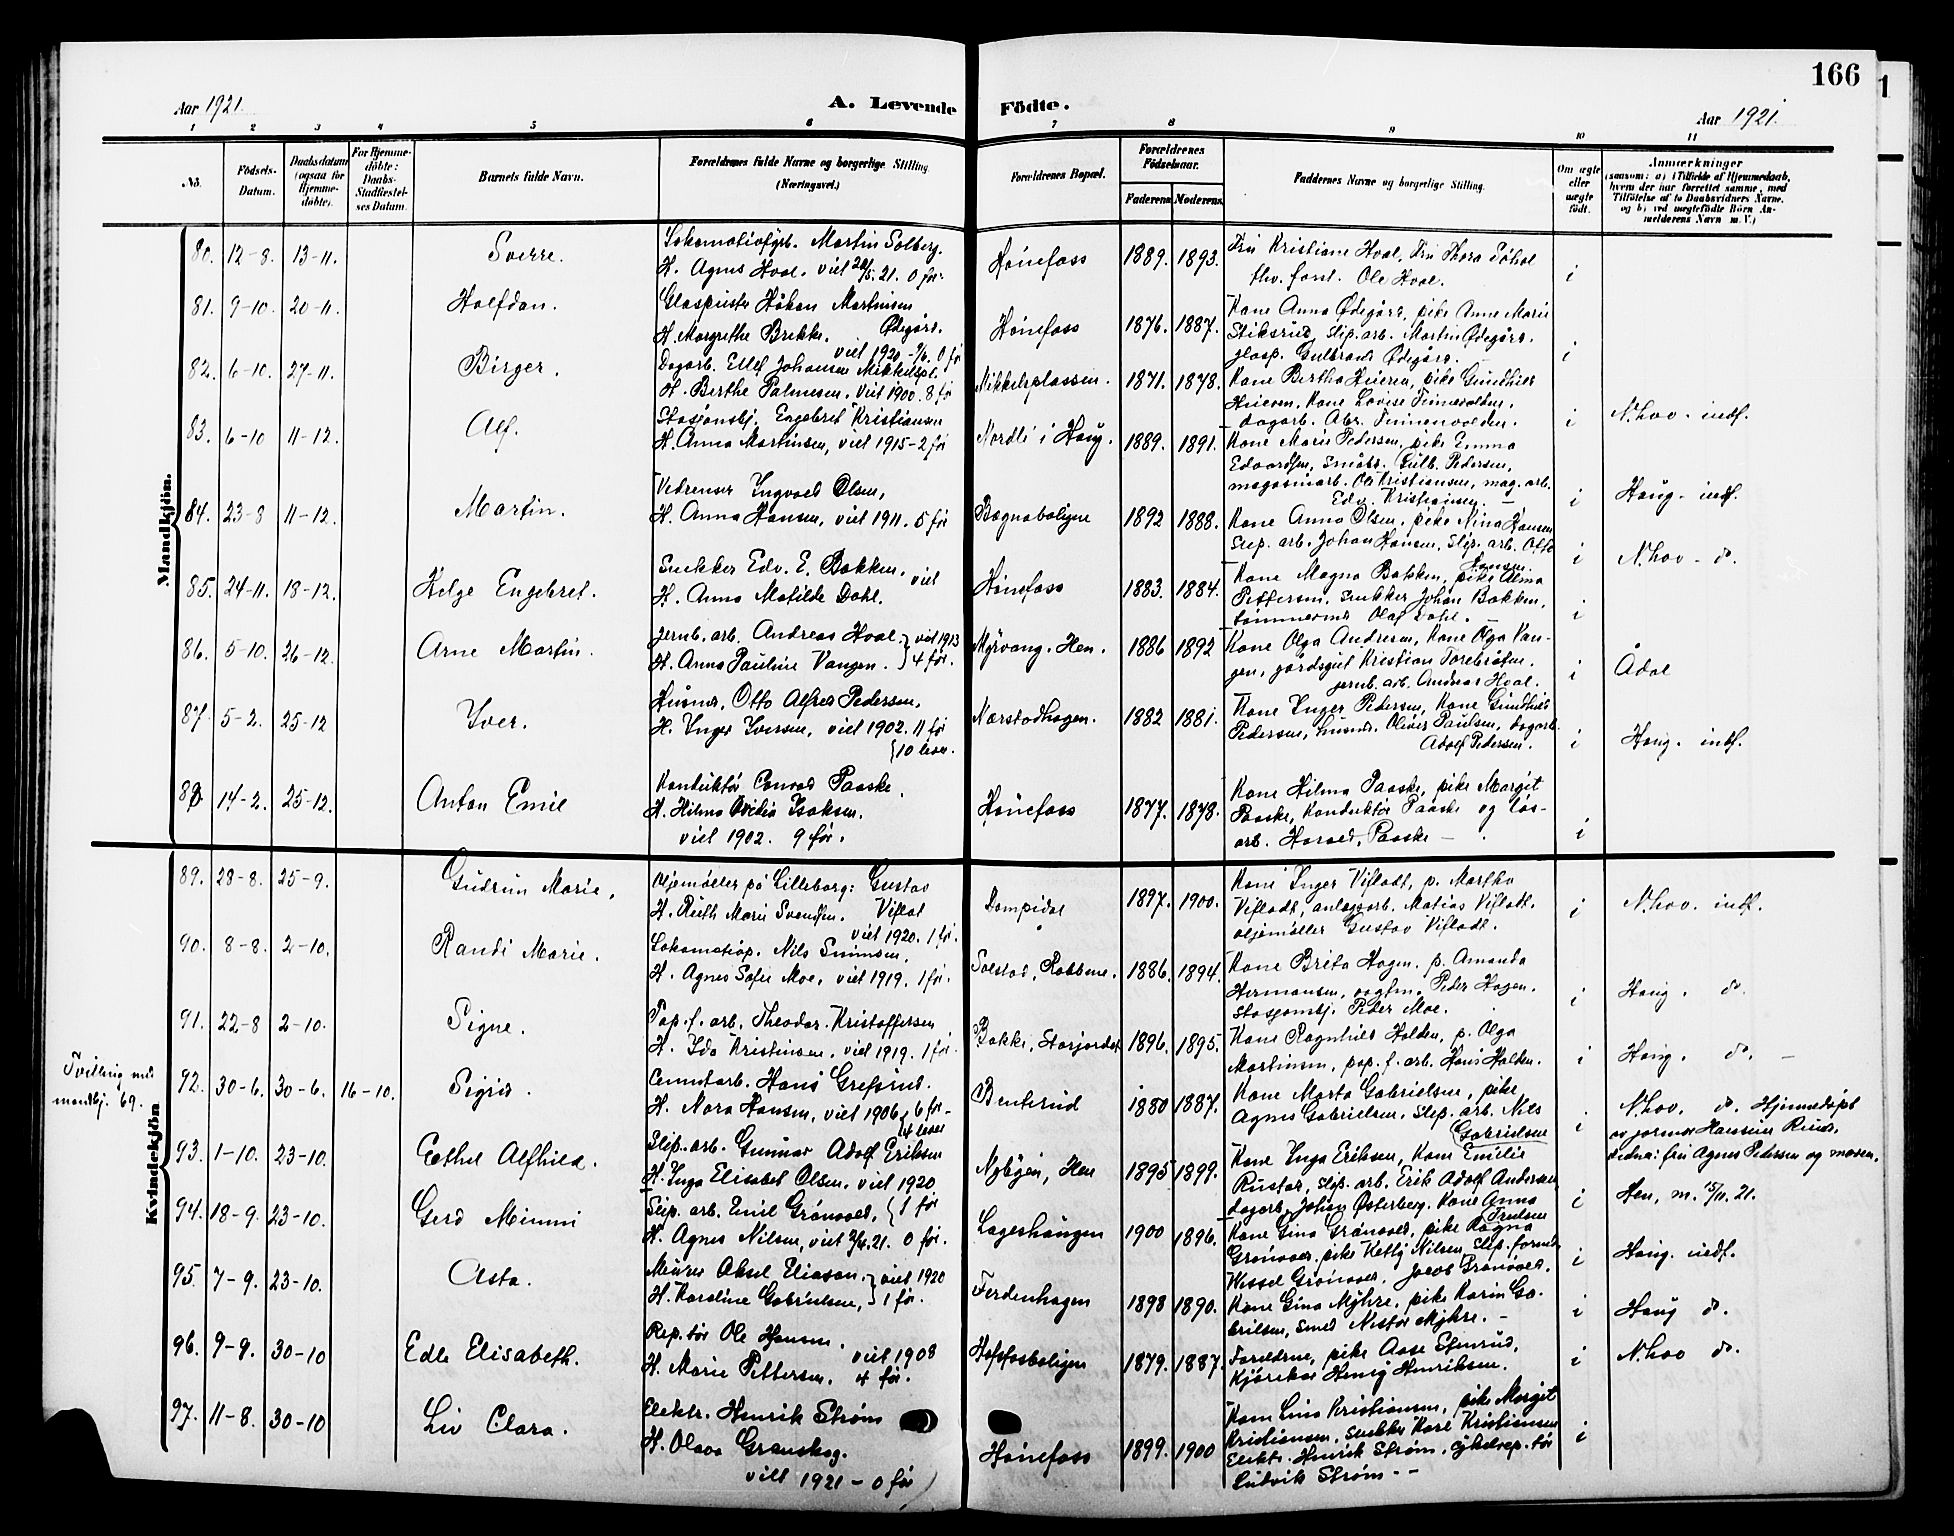 166
Aar 1921.
A. Levende Födte.
Aar 1921.
1 2 3 4 5 6 7 8 9 10 11
No.
Födsels-
Datum.
Daabsdatum
(ogsaa for
Hjemme-
döbte).
For Hjemme-
döbte:
Daabs-
Stadfæstel-
ses Datum.
Barnets fulde Navn.
Forældrenes fulde Navne og borgerlige Stilling
(Næringsvei.)
Forældrenes Bopæl.
Forældrenes
Födselsaar.
Faderens
Moderens
Faddernes Navne og borgerlige Stilling.
Om ægte
eller
uægte
födt.
Anmærkninger
(saasom: a) i Tilfælde af Hjemmedaab,
hvem der har forrettet samme, med
Tilföielse af to Daabsvidners Navne.
og b) ved uægtefödte Börn An-
melderens Navn m. V.)
Mandkjön.
80. 12-8. 13-11. Sverre.
Lokomotivfyrb. Martin Solberg.
H. Agnes Hval. viet 28/5.21. 0 før.
Hønefoss 1889. 1893.
Fru Kristiane Hval, Fru Thora
fhv. Ole Hval. i
81. 9-10. 20-11. Halfdan.
Glaspuster Håkon Martinsen
Ødegård.
H. Margrethe Brekke.
viet 1920 0 før
Hønefoss 1876. 1887.
Kone Anna Ødegård, pike Anne Marie
Stiksrud, slip.arb. Martin Ødegård.
glasp. Gulbrand Ødegård. i
82. 6-10. 27-11. Birger.
Dagarb. Ellef Johansen Mikkelspl.
H. Berthe Palmesen. Viet 1900. 8 før
Mikkelsplassen. 1871. 1878.
Kone Bertha Heieren, pike Gundhild
Heieren, Kone Lovise Finnevolden.
dagarb. Abr. Finnevolden. i
N.hov. indf.
83. 6-10 11-12. Alf.
Stasjonsbj. Engebret Kristiansen
H. Anna Martinsen, viet 1915-2 før
Nordli i Haug. 1889. 1891.
Kone Marie Pedersen, pike Emma
Edvardsen, småbr. Gulb. Pedersen,
magasinarb. Ole Kristiansen, mag. arb.
Edv. Kristiansen. - i
Haug. indf.
84. 23-8 11-12. Martin.
Vedrenser Ingvald Olsen,
H. Anna Hansen, viet 1911. 5 før
Bægnaboligne 1892 1888.
Kone Anna Olsen, pike Nina Hansen
Slip. arb. Johan Hansen, Slip. arb. Otto
Hansen. i
N.hov - do.
85. 24-11. 18-12. Helge Engebret.
Snekker Edv. E. Bakken. viet
H. Anna Matilde Dahl.
Hønefoss 1883. 1884.
Kone Magna Bakken, pike Alma
Pettersen. snekker Johan Bakken,
tømmermd Olaf Dahl. i
86. 5-10. 26-12. Arne Martin.
Jernb. arb. Andreas Hval. } viet 1913
H. Anna Pauline Vangen. } 4 før.
Myrvang, Hen. 1886 1892
Kone Olga Andresen, Kone Olga Van-
gen, gårdsgut Kristian Torebråten.
jernb. arb. Andreas Hval. i
Ådal
87. 5-2. 25-12 Iver.
Husmd. Otto Alfred Pedersen.
H. Inger Iversen, viet 1902. 11 før
{10 lever.
Nærstadhagen. 1882 1881.
Kone Inger Pedersen, Kone Gundhild
Pedersen, husmd. Oliver Paulsen, dagarb.
Adolf Pedersen. i
Haug. indf.
88. 14-2. 25-12. Anton Emil
Konduktør Conrad Paaske.
H. Hilma Isaksen.
viet 1902. 9 før.
Hønefoss 1877. 1878.
Kone Hilma Paaske, pike Margit
Paaske, konduktør Paaske og løs-
arb. Harald Paaske - i
Kvindekjön
89. 28-8. 25-9. Gudrun Marie.
Oljemøller på Lilleborg: Gustav
H. Ruth Marie Svendsen. Viflat
viet 1920. 1 før.
Dampidal 1897. 1900.
Kone Inger Vifladt, p. Martha
Vifladt, anlægsarb. Matias Vifladt.
oljemøller Gustav Vifladt. i
N.hov. indf.
90. 8-8. 2-10. Randi Marie.
Lokomotivp. Nils Simensen,
H. Agnes Sofie Moe, viet 1919. 1 før.
Solstad, Robbene. 1886. 1894.
Kone Brita Hagen. p. Amanda
Hermansen, vogtm. Peder Hagen.
Stasjonsbj. Peder Moe. i
Haug. do.
91. 22-8 2-10. Signe.
Pap. f. arb. Theodor Kristoffersen
H. Ida Kristinsen, viet 1919. 1 før.
Bakke, Storjordet 1896. 1895.
Kone Ragnhild Holden, p. Olga
Martinsen, pap. f. arb. Hans Holden. i
Haug. do. -
Tvilling med
mandkj. 69.
92. 30-6. 30-6. 16-10. Sigrid.
Cementarb. Hans Grefsrud.
H. Nora Hansen, viet 1906 { 6 før -
4 lever
Benterud 1880 1887.
Kone Marta Gabrielsen, pike
Agnes Gabrielsen, slip. arb. Nils
Gabrielsen i
N.hov. do. Hjemmedøpt
av jormor Hansine Rud.
vidner: fru Agnes Pedersen og moren.
93. 1-10. 23-10. Ethel Alfhild.
Slip. arb. Gunnar Adolf Eriksen
H. Inga Elisabet Olsen. viet 1920
1 før
Nybyen, Hen 1895 1899.
Kone Inga Eriksen, Kone Emilie
Rustad, slip. arb. Erik Adolf Andersen
dagarb. Johan Østerberg, Kone Anna
Trulsen i
Hen, m. 15/11. 21.
94. 18-9. 23-10. Gerd Mimmi
Slip. arb. Emil Grønvold,
H. Agnes Nilsen, viet 2/4.21. 0 før.
Lageshaugen 1900 1896.
Kone Gina Grønvold, pike Ragna
Grønvold, pike Ketty Nilsen, Slip. formd.
Wessel Grønvold. Jacob Grønvold. i
Haug. indf.
95. 7-9. 23-10. Asta.
Murer Aksel Eliason. } viet 1920
H. Karoline Gabrielsen, } 1 før.
Ferdenhagen 1898 1890.
Kone Gina Myhre, pike Karin Ga-
brielsen, smed Nestor Myhre. - i
Haug do.
96. 9-9. 30-10 Edle Elisabeth.
Rep.tør Ole Hansen.
H. Marie Pettersen. viet 1908
4 før.
Hofsfosboligen 1879. 1887.
Foreldrene, pike Aase Stenrud,
Kjørekar Henry Henriksen. i
N.hov do.
97. 11-8. 30-10 Liv Clara.
Elektr. Henrik Strøm
H. Olava Granskog.
viet 1921 - 0 før
Hønefoss 1899. 1900
Kone Lina Kristiansen, pike Margit
Kristiansen, snekker Kåre Kristiansen
Elektr. Henrik Strøm. cykelrep.tør
Ludvik Strøm - - i